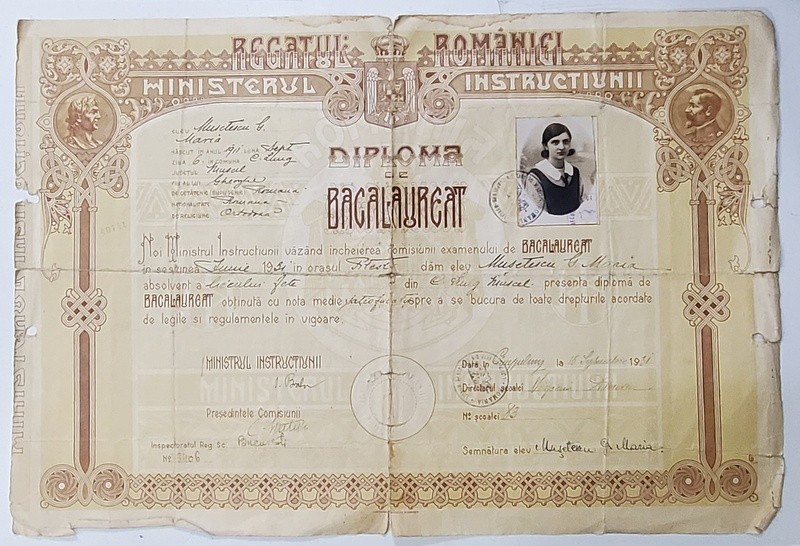 REGATUL ROMÂNIEI
MINISTERUL INSTRUCȚIUNII
ELEV Mușetescu G.
Maria
NĂSCUT ÎN ANUL 1911 LUNA Sept
ZIUA 6 ÎN COMUNA C. Lung
JUDEȚUL Muscel
FIU AL LUI Gheorghe
DE CETĂȚENIE Romana
NATIONALITATE Romana
DE RELIGIUNE Ortodoxa
DIPLOMA
DE
BACALAUREAT
Noi Ministrul Instrucțiunii văzând încheierea comisiunii examenului de BACALAUREAT
în sesiunea Iunie 1931 în orașul Pitești dăm elev Mușetescu G. Maria
absolvent a liceului fete din C. Lung Muscel prezenta diplomă de
BACALAUREAT obținută cu nota medie spre a se bucura de toate drepturile acordate
de legile si regulamentele în vigoare.
MINISTRUL INSTRUCȚIUNII
Dată în Câmpulung la 15 Septembrie 1931
Directorul școalei
Președintele Comisiunii
No școalei 83
Inspectoratul Reg. Sc.
No 3406
Semnătura elev Mușetescu G. Maria